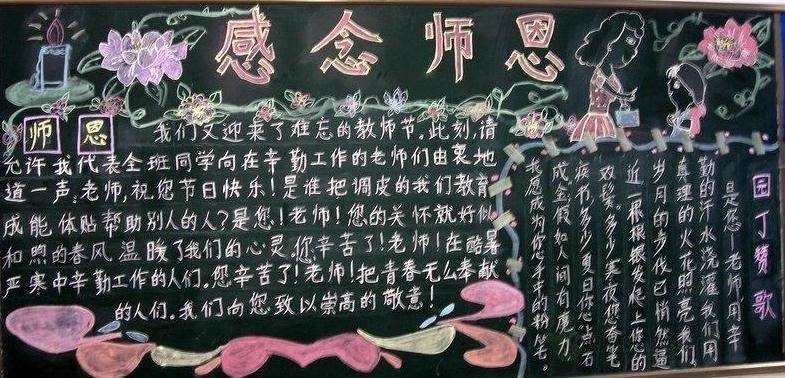 感念师恩
师恩
我们又迎来了难忘的教师节。此刻,请
允许我代表全班同学向在辛勤工作的老师们由衷地
道一声,老师,祝您节日快乐!是谁把调皮的我们教育
成能体贴帮助别人的人?是您!老师!您的关怀就好似
和煦的春风温暖了我们的心灵。您辛苦了!老师!在酷暑
严寒中辛勤工作的人们。您辛苦了!老师!把青春无么奉献
的人们。我们向您致以崇高的敬意!
园丁赞歌
是您—老师用辛
勤的汗水浇灌我们用
真理的火花的亮我们,
岁月的步伐已悄然逼
近,根根银发爬上您的
双鬓。多少寒夜您备笔
疾书,多少夏日您点石
成金。假如人间有魔力,
我愿成为您手中的粉笔。